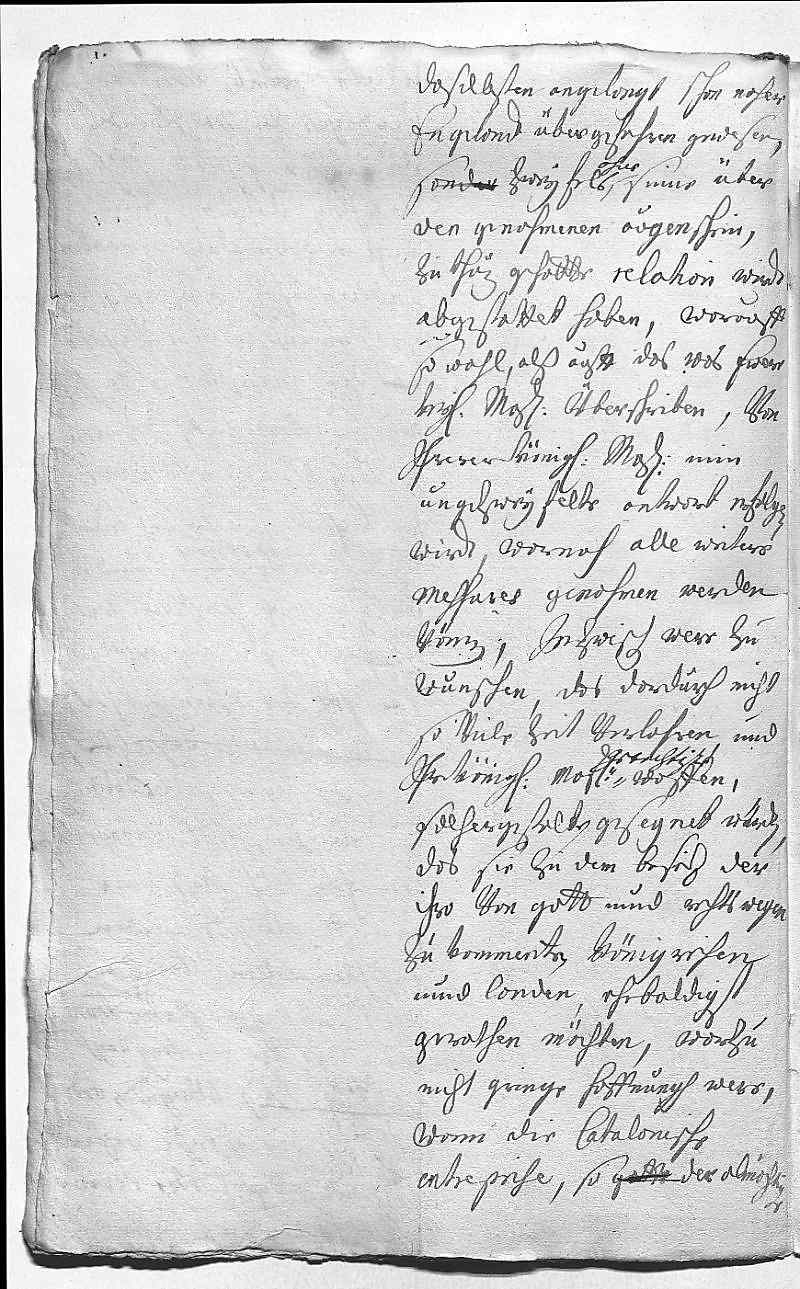 daselbsten angelangt schon naher
Engeland übergefahren gewesen,
sonder zweyfels, ohne seine über
den genohmenen augenschein,
gehabte relation wirdt
abgestattet haben, worauff
so wohl, als auch das was Ewer
königl. May: überschriben, Von
Ihrer königl: May: ein
ungezweyfelte antwort erfolgen
wirdt, wornach alle weitere
messures genohmen werden
können, Inzwisch were zu
wünschen, das dardurch nicht
so Viele zeit Verlohren und
Ihr königl. May: waffen,
solchergestalt gesegnet würden,
das sie zu dem besitz der
ihro Von gott und rechts wegen
zu kommenten Königreichen
und landen, ehebaldigst
gerathen möchten, warzu
nicht geringe hoffnung were,
wann die Catalonische
entreprise, so gott der almächtige